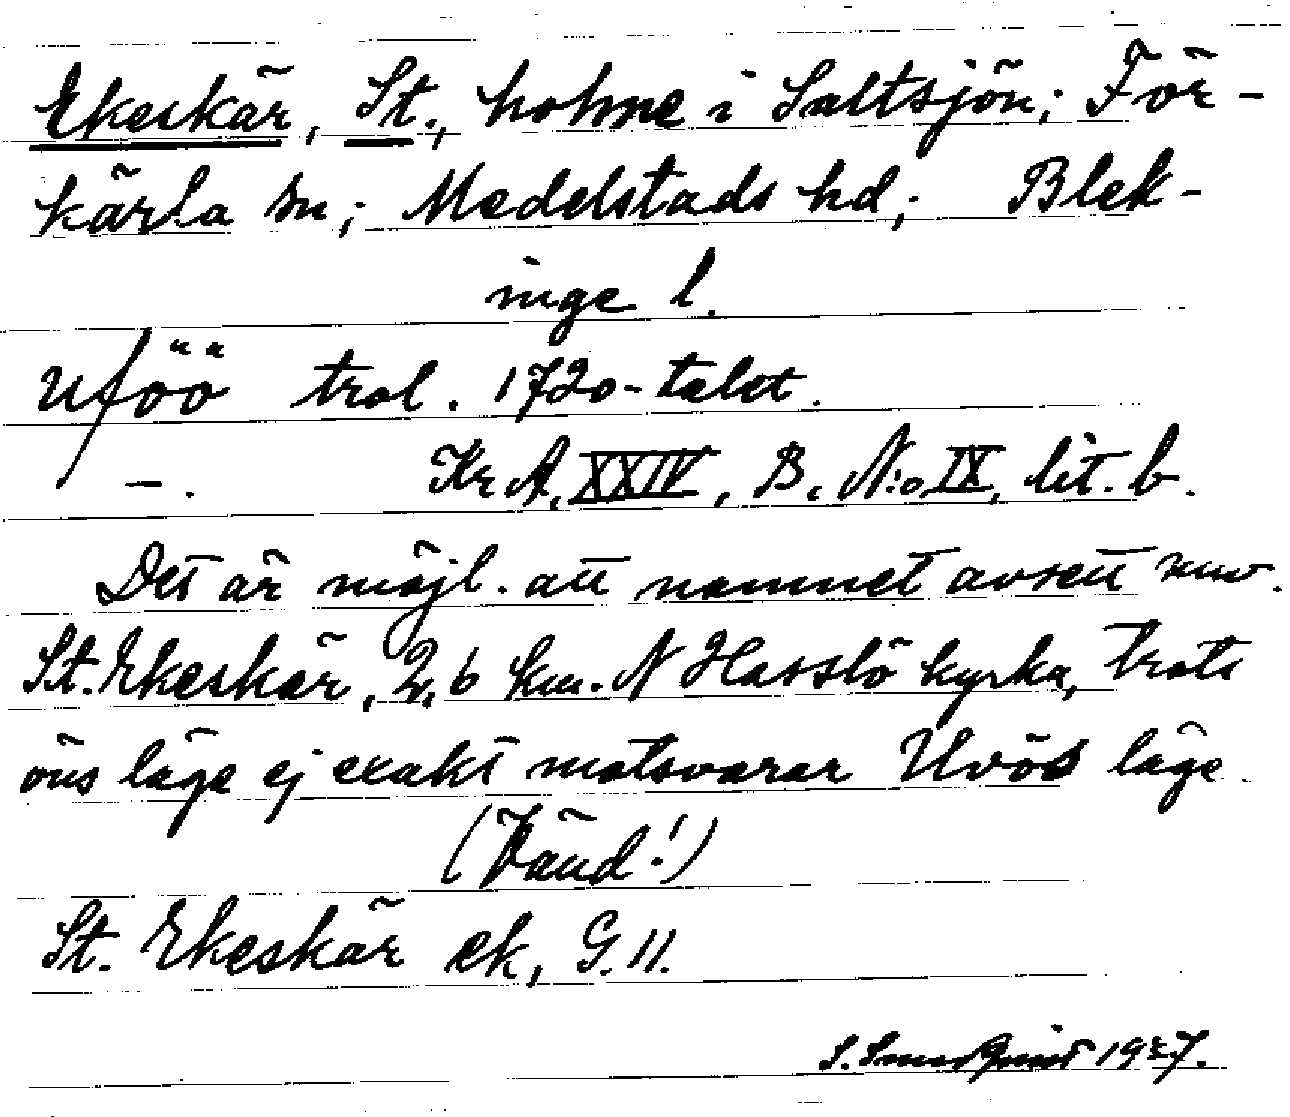 Ekeskär, St., holme i Saltsjön; För-
kärla sn; Medelstads hd; Blek-
inge l.
Uföö trol. 1720-talet.
–. Kr A, XXIV, B, N:o IX, lit. b.
Det är möjl. att namnet avsett nuv.
St. Ekeskär, 2,6 km. N Hasslö kyrka, trots
öns läge ej exakt motsvarar Uvös läge.
(Vänd!)
St. Ekeskär ek, G. 11.
S. 19